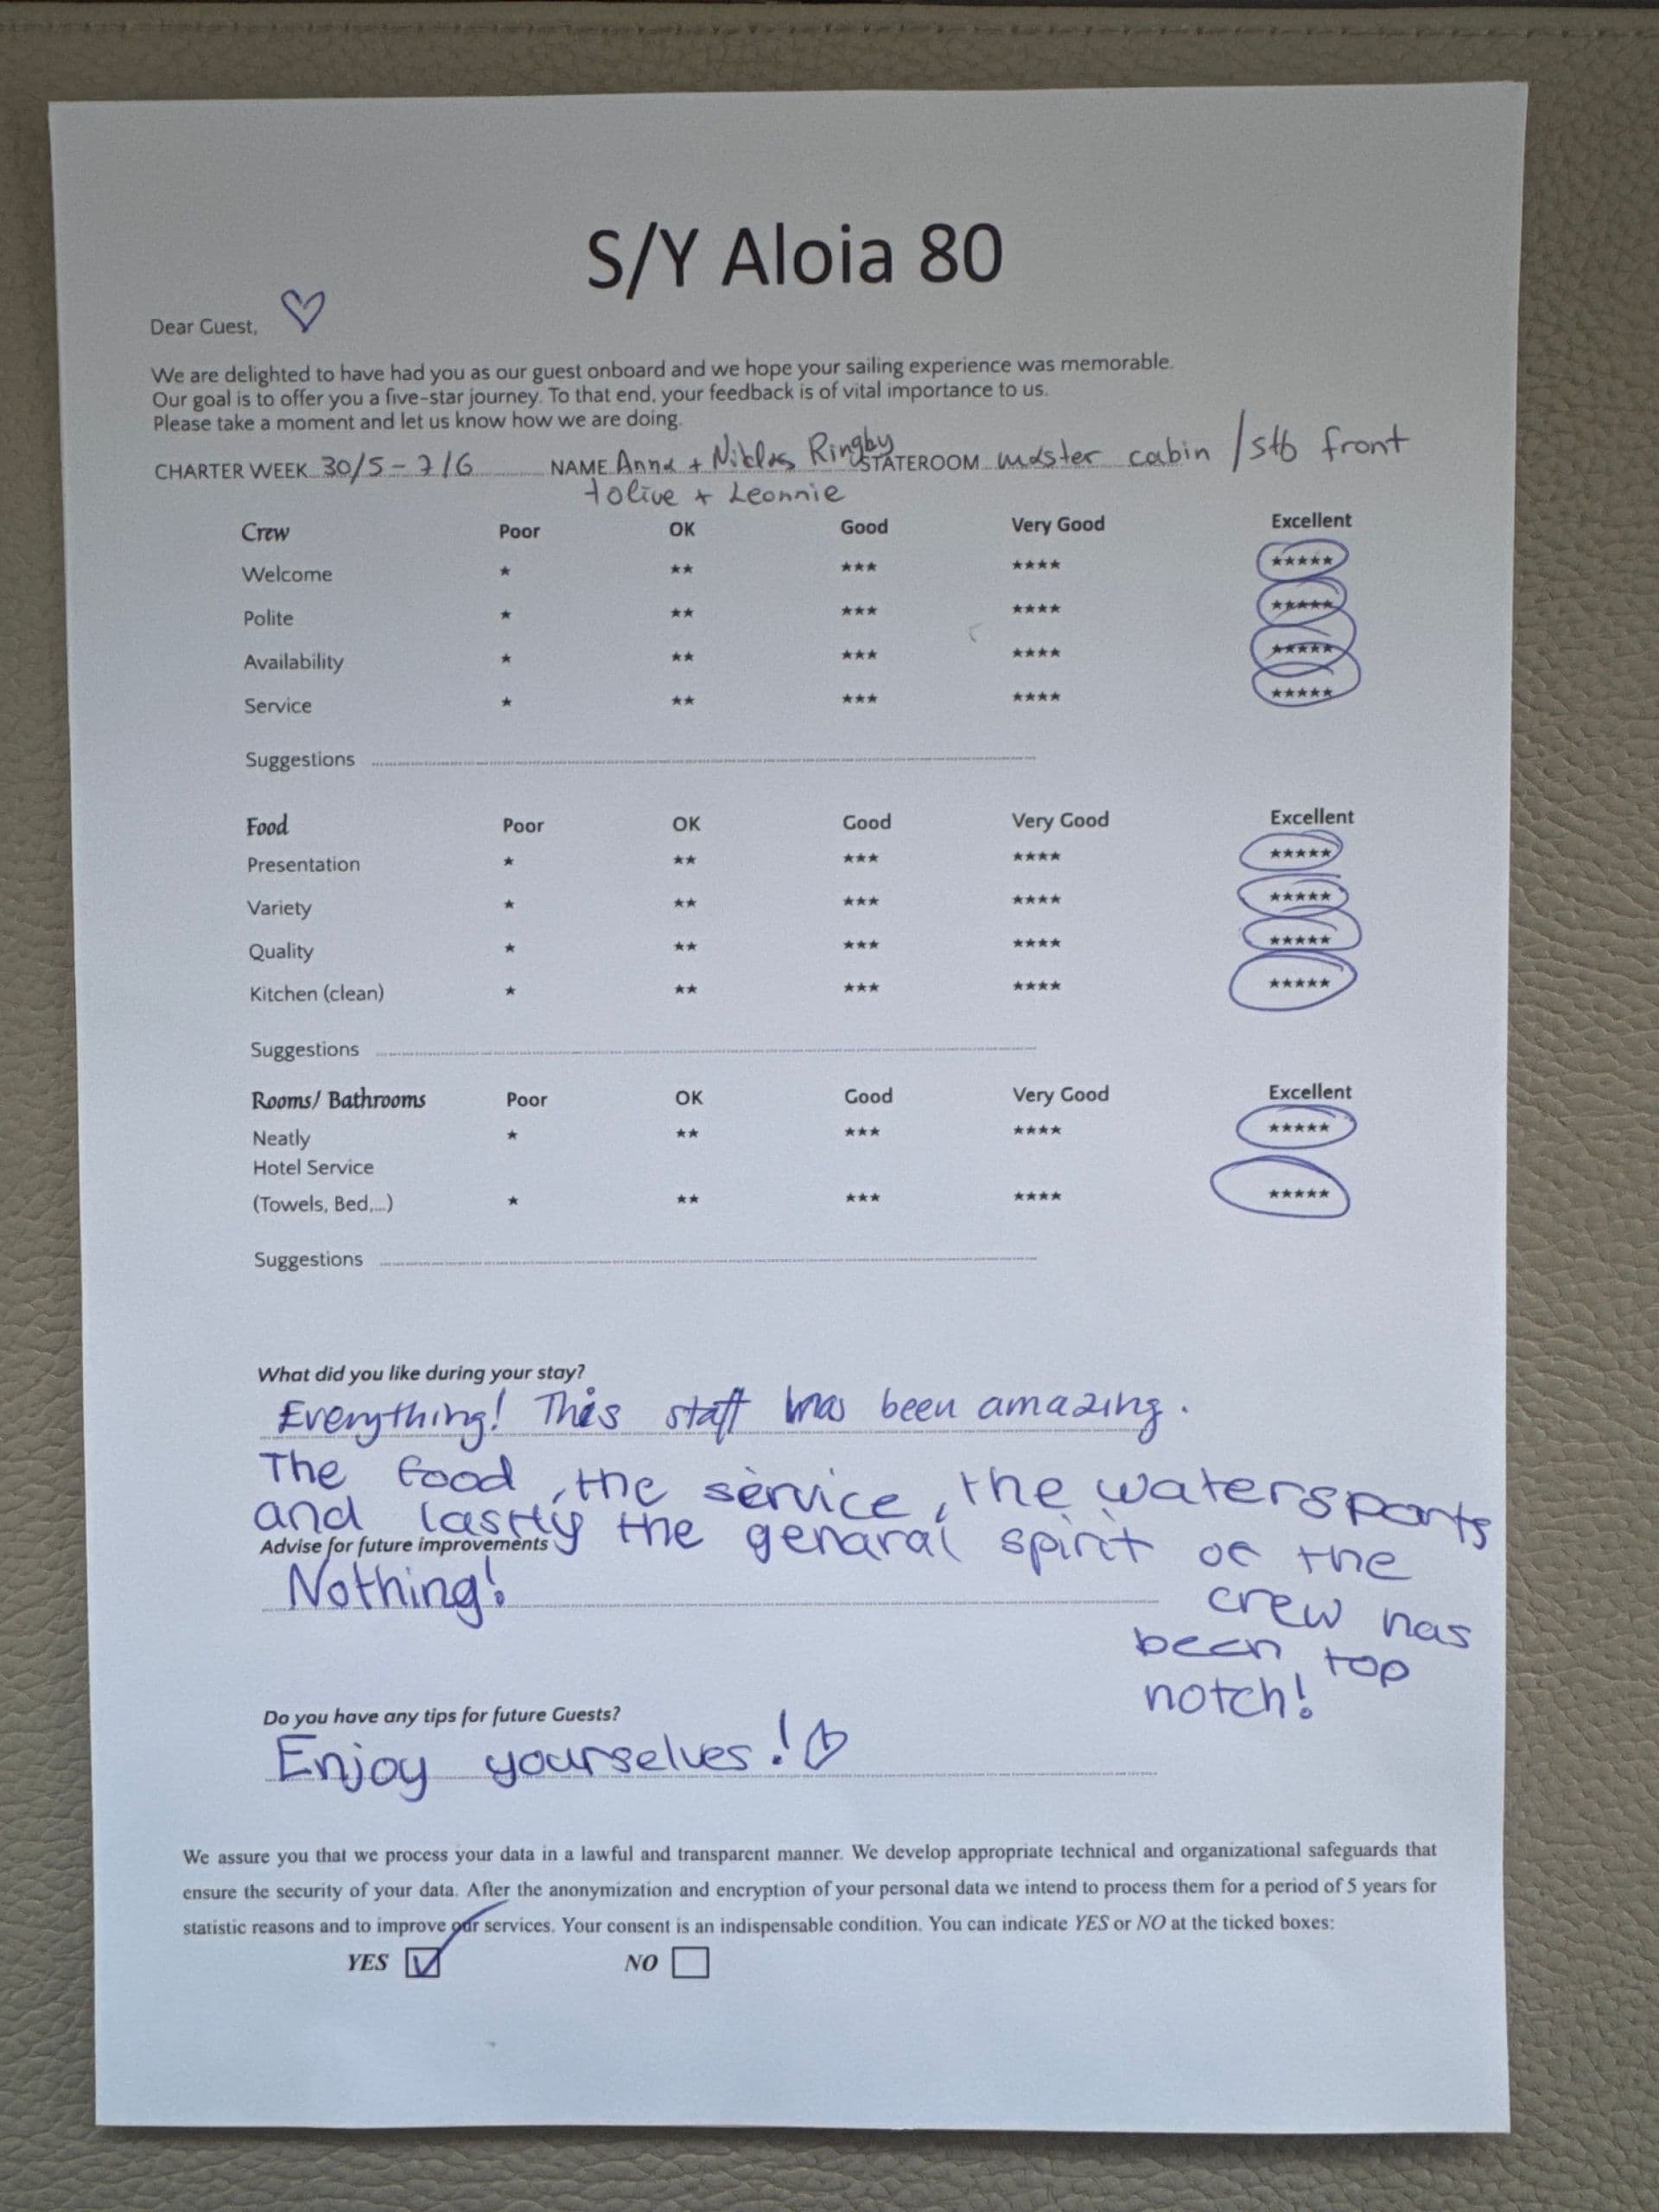 S/Y Aloia 80
Dear Guest, ♡
We are delighted to have had you as our guest onboard and we hope your sailing experience was memorable.
Our goal is to offer you a five-star journey. To that end, your feedback is of vital importance to us.
Please take a moment and let us know how we are doing.
CHARTER WEEK 30/5 - 7/6 NAME Anna + Niklas Ringby STATEROOM master cabin / stb front
+ Olive + Leonnie
Crew Poor OK Good Very Good Excellent
Welcome ★ ★★ ★★★ ★★★★ ★★★★★
Polite ★ ★★ ★★★ ★★★★ ★★★★★
Availability ★ ★★ ★★★ ★★★★ ★★★★★
Service ★ ★★ ★★★ ★★★★ ★★★★★
Suggestions
Food Poor OK Good Very Good Excellent
Presentation ★ ★★ ★★★ ★★★★ ★★★★★
Variety ★ ★★ ★★★ ★★★★ ★★★★★
Quality ★ ★★ ★★★ ★★★★ ★★★★★
Kitchen (clean) ★ ★★ ★★★ ★★★★ ★★★★★
Suggestions
Rooms/ Bathrooms Poor OK Good Very Good Excellent
Neatly ★ ★★ ★★★ ★★★★ ★★★★★
Hotel Service
(Towels, Bed,...) ★ ★★ ★★★ ★★★★ ★★★★★
Suggestions
What did you like during your stay?
Everything! This staff has been amazing.
The food, the service, the watersports
and lastly the genaral spirit of the
crew has
been top
notch!
Advise for future improvements
Nothing!
Do you have any tips for future Guests?
Enjoy yourselves! ♡
We assure you that we process your data in a lawful and transparent manner. We develop appropriate technical and organizational safeguards that
ensure the security of your data. After the anonymization and encryption of your personal data we intend to process them for a period of 5 years for
statistic reasons and to improve our services. Your consent is an indispensable condition. You can indicate YES or NO at the ticked boxes:
YES ☑ NO ☐